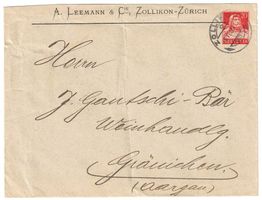 A. LEEMANN & CIE, ZOLLIKON-ZÜRICH
Herrn
J. Gautschi-Bär
Weinhandlg.
Gränichen.
(Aargau)